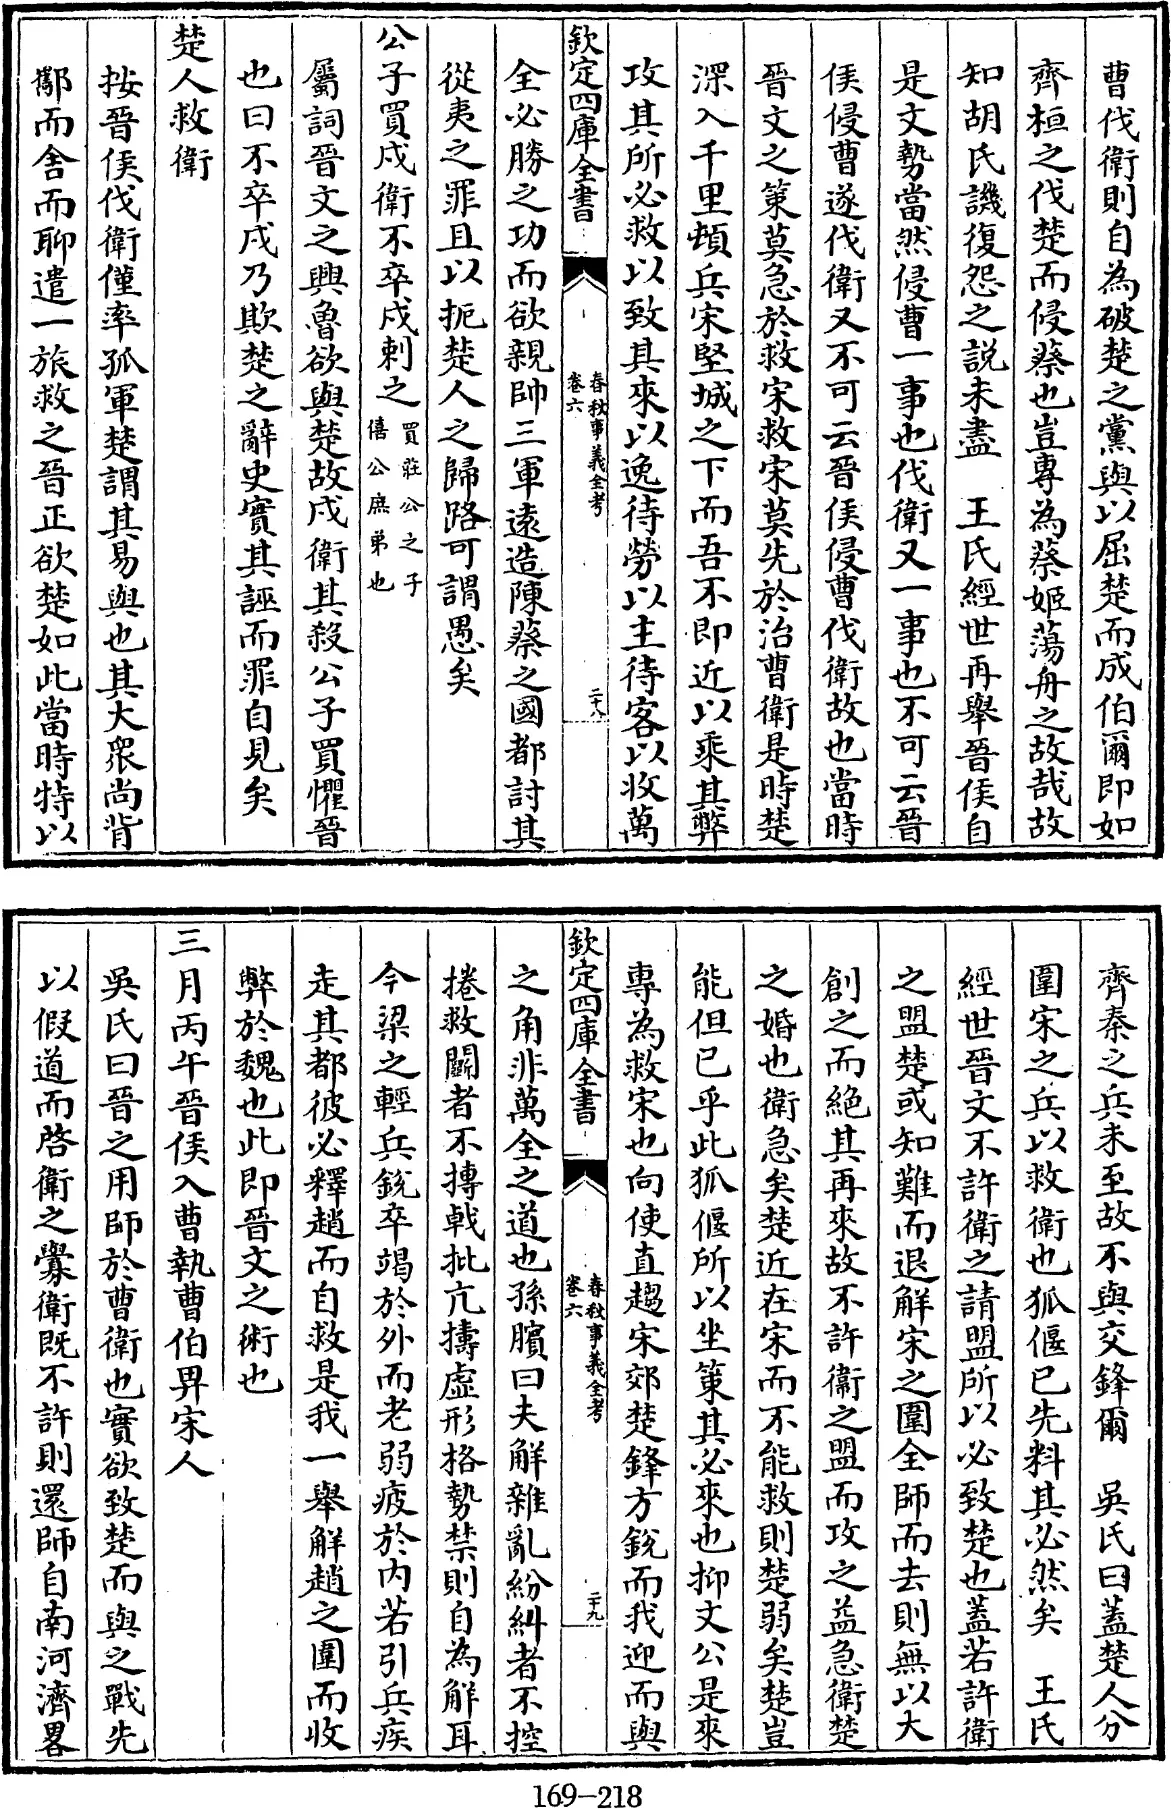 曹伐衛則自為破楚之黨與以屈楚而成伯爾即如
齊桓之伐楚而侵蔡也豈專為蔡姬蕩舟之故哉故
知胡氏譏復怨之説未盡　王氏經世再舉晉侯自
是文勢當然侵曹一事也伐衛又一事也不可云晉
侯侵曹遂伐衛又不可云晉侯侵曹伐衛故也當時
晉文之策莫急於救宋救宋莫先於治曹衛是時楚
深入千里頓兵宋堅城之下而吾不即近以乘其弊
攻其所必救以致其來以逸待勞以主待客以收萬
欽定四庫全書
春秋事義全考
卷六
二十八
全必勝之功而欲親帥三軍遠造陳蔡之國都討其
從夷之罪且以扼楚人之歸路可謂愚矣
公子買戍衛不卒戍刺之買莊公之子僖公庶弟也
屬詞晉文之興魯欲與楚故戍衛其殺公子買懼晉
也曰不卒戍乃欺楚之辭史實其誣而罪自見矣
楚人救衛
按晉侯伐衛僅率孤軍楚謂其易與也其大衆尚背
鄬而舍而聊遣一旅救之晉正欲楚如此當時特以
齊秦之兵未至故不與交鋒爾　吳氏曰蓋楚人分
圍宋之兵以救衛也狐偃已先料其必然矣　王氏
經世晉文不許衛之請盟所以必致楚也蓋若許衛
之盟楚或知難而退解宋之圍全師而去則無以大
創之而絶其再來故不許衞之盟而攻之益急衛楚
之婚也衛急矣楚近在宋而不能救則楚弱矣楚豈
能但已乎此狐偃所以坐策其必來也抑文公是來
專為救宋也向使直趨宋郊楚鋒方銳而我迎而與
欽定四庫全書
春秋事義全考
卷六
二十九
之角非萬全之道也孫臏曰夫解雜亂紛糾者不控
捲救鬭者不摶戟批亢擣虛形格勢禁則自為解耳
今梁之輕兵銳卒竭於外而老弱疲於内若引兵疾
走其都彼必釋趙而自救是我一舉解趙之圍而收
弊於魏也此即晉文之術也
三月丙午晉侯入曹執曹伯畀宋人
吳氏曰晉之用師於曹衛也實欲致楚而與之戰先
以假道而啓衛之釁衛既不許則還師自南河濟畧
169-218